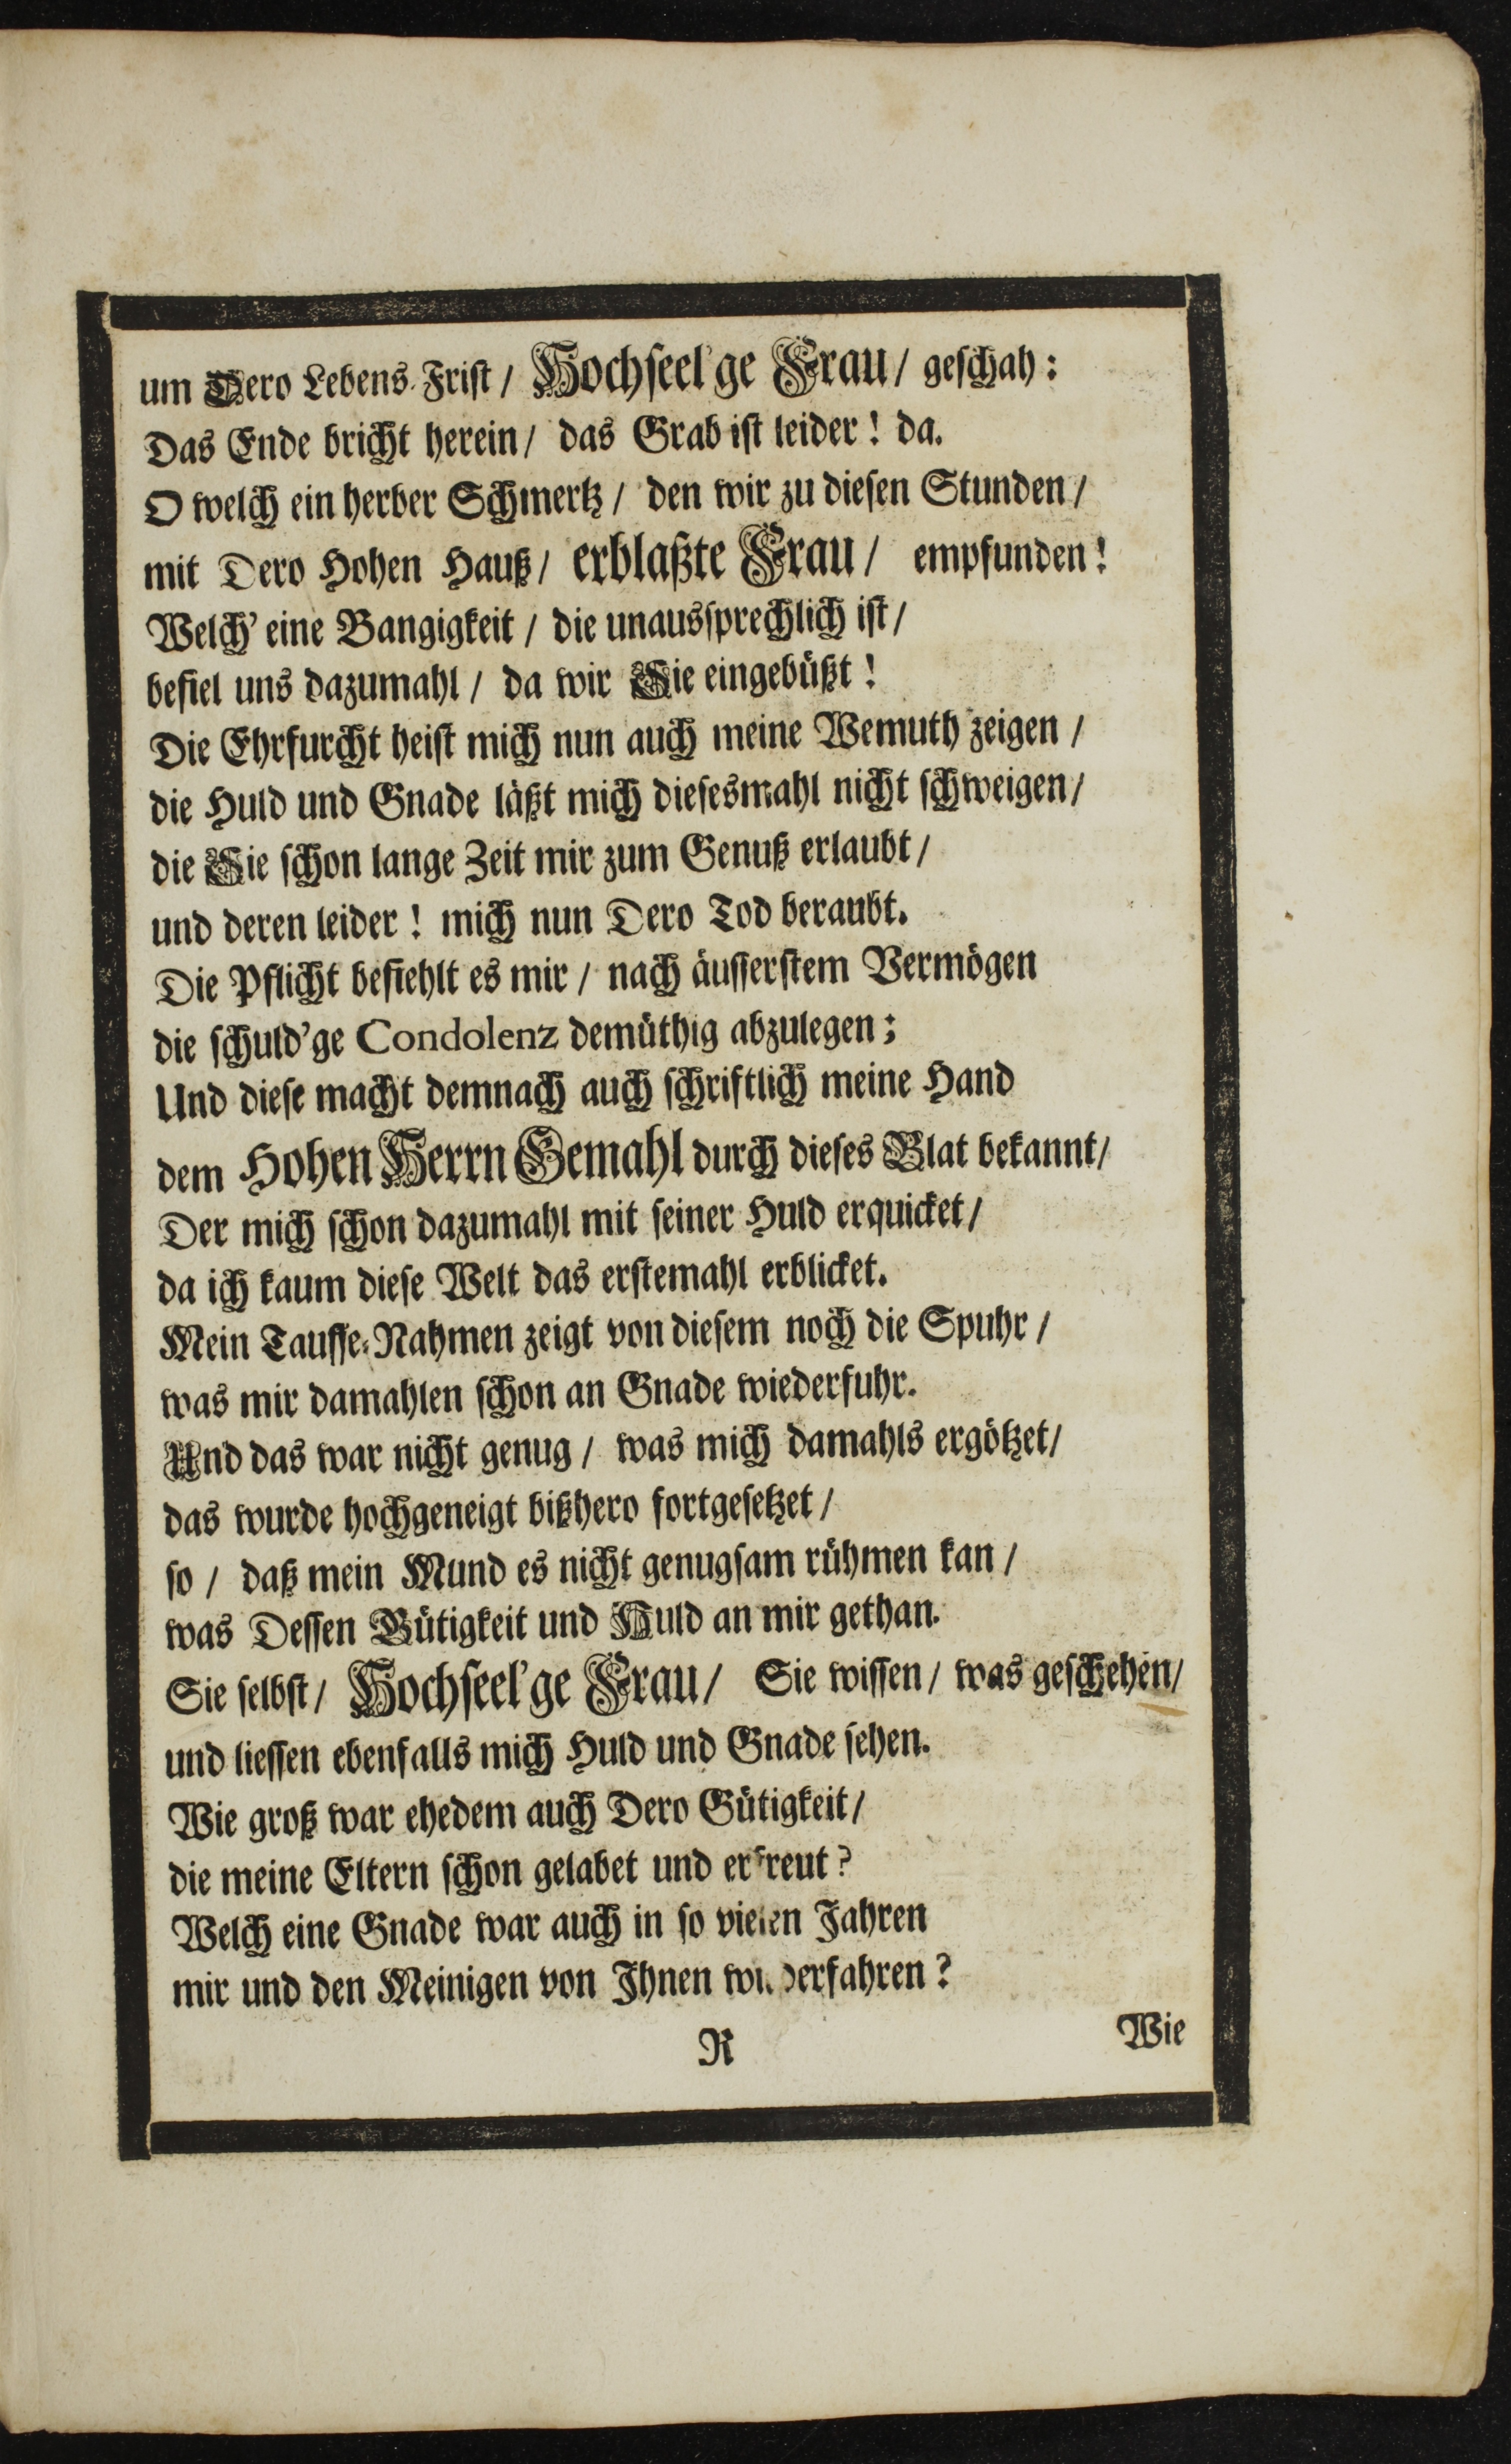 um Dero Lebens-Frist / Hochseel'ge Frau / geschah:
Das Ende bricht herein / das Grab ist leider! da.
O welch ein herber Schmertz / den wir zu diesen Stunden /
mit Dero Hohen Hauß / erblaßte Frau / empfunden!
Welch' eine Bangigkeit / die unaussprechlich ist /
befiel uns dazumahl / da wir Sie eingebüßt!
Die Ehrfurcht heist mich nun auch meine Wemuth zeigen /
die Huld und Gnade läßt mich diesesmahl nicht schweigen /
die Sie schon lange Zeit mir zum Genuß erlaubt /
und deren leider! mich nun Dero Tod beraubt.
Die Pflicht befiehlt es mir / nach äusserstem Vermögen
die schuld'ge Condolenz demüthig abzulegen;
Und diese macht demnach auch schriftlich meine Hand
dem Hohen Herrn Gemahl durch dieses Blat bekannt /
Der mich schon dazumahl mit seiner Huld erquicket /
da ich kaum diese Welt das erstemahl erblicket.
Mein Tauffe-Nahmen zeigt von diesem noch die Spuhr /
was mir damahlen schon an Gnade wiederfuhr.
Und das war nicht genug / was mich damahls ergötzet /
das wurde hochgeneigt bißhero fortgesetzet /
so / daß mein Mund es nicht genugsam rühmen kan /
was Dessen Gütigkeit und Huld an mir gethan.
Sie selbst / Hochseel'ge Frau / Sie wissen / was geschehen /
und liessen ebenfalls mich Huld und Gnade sehen.
Wie groß war ehedem auch Dero Gütigkeit /
die meine Eltern schon gelabet und erfreut?
Welch eine Gnade war auch in so vielen Jahren
mir und den Meinigen von Ihnen wiederfahren?
R
Wie